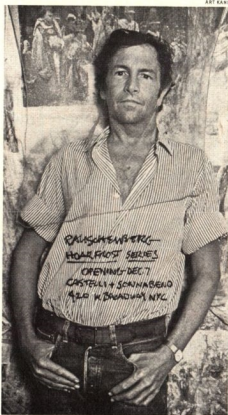 ART KANE
RAUSCHENBERG
HOARFROST SERIES
OPENING DEC. 7
CASTELLI + SONNABEND
420 W. BROADWAY, NYC